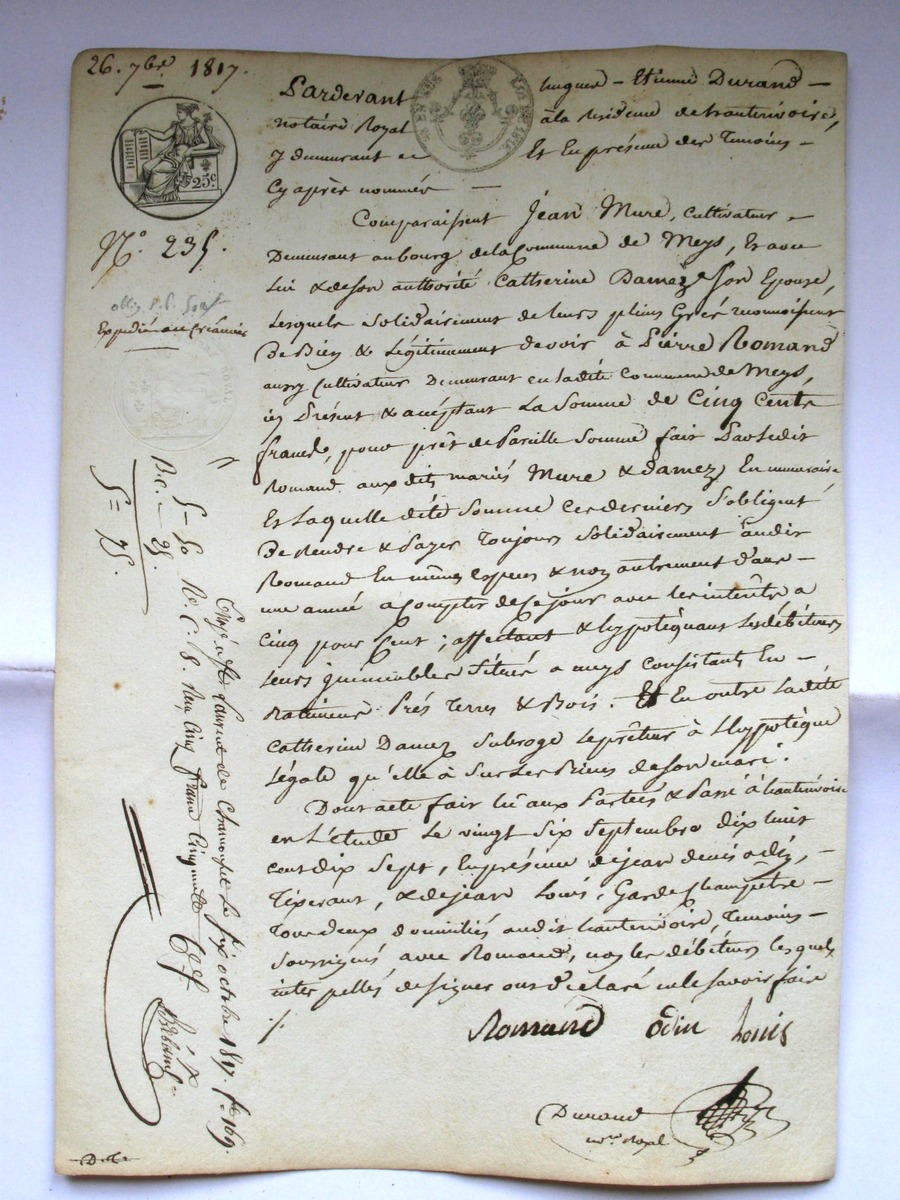 26. 7bre 1817.
25c
N° 235.
Expédiée au Créancier
Pardevant hugues - Etienne Durand -
notaire Royal à la Résidence de hauterivoire,
y demeurant et Et En présence des Temoins -
Cy après nommés -
Comparaissent Jean Mure, Cultivateur
Demeurant au bourg de la Commune de Meys, Et avec
Lui & de son authorité Catherine Damez Son Epouse,
Lesquels Solidairement de leurs pleins Grés reconnoissent
De Bien & Légitimement devoir à Pierre Romand
aussy Cultivateur Demeurant en ladite Commune de Meys,
ici Présent & acceptant La Somme de Cinq Cents
francs, pour prêt de Pareille Somme fait Par ledit
Romand aux dits mariés Mure & Damez En numeraire
Et Laquelle dite Somme Ces derniers S'obligent
De Rendre & Payer Toujours Solidairement audit
Romand En mêmes Especes & non autrement dans
une année à Compter de Ce jour avec les intérêts a
Cinq pour Cent ; affectant & hypotéquant Les débiteurs
Leurs immeubles Situés a meys Consistants En -
Batiments Prés Terres & Bois. Et En outre Ladite
Catherine Damez Subroge Le prêteur à L'hypotèque
Légale qu'elle à Sur Les Biens de Son mari.
Dont acte fait lû aux Parties & Passé à hauterivoire
en L'étude Le vingt Six Septembre dix huit
cent dix Sept, En présence de jean denis odin, -
Tisserant, & de jean Louis, Garde Champêtre -
Tous deux domiciliés audit hauterivoire, Temoins -
Soussignés avec Romand, non les débiteurs lesquels
interpellés de signer ont déclaré ne le Savoir faire
Romand Odin Louis
Durand
nore Royal
5 - 50
B.c. - 25.
5 = 75.
Enré à St Laurent de Chamousset Le Six octobre 1817. fo 169
R. C. 8. Reçu Cinq francs Cinquante